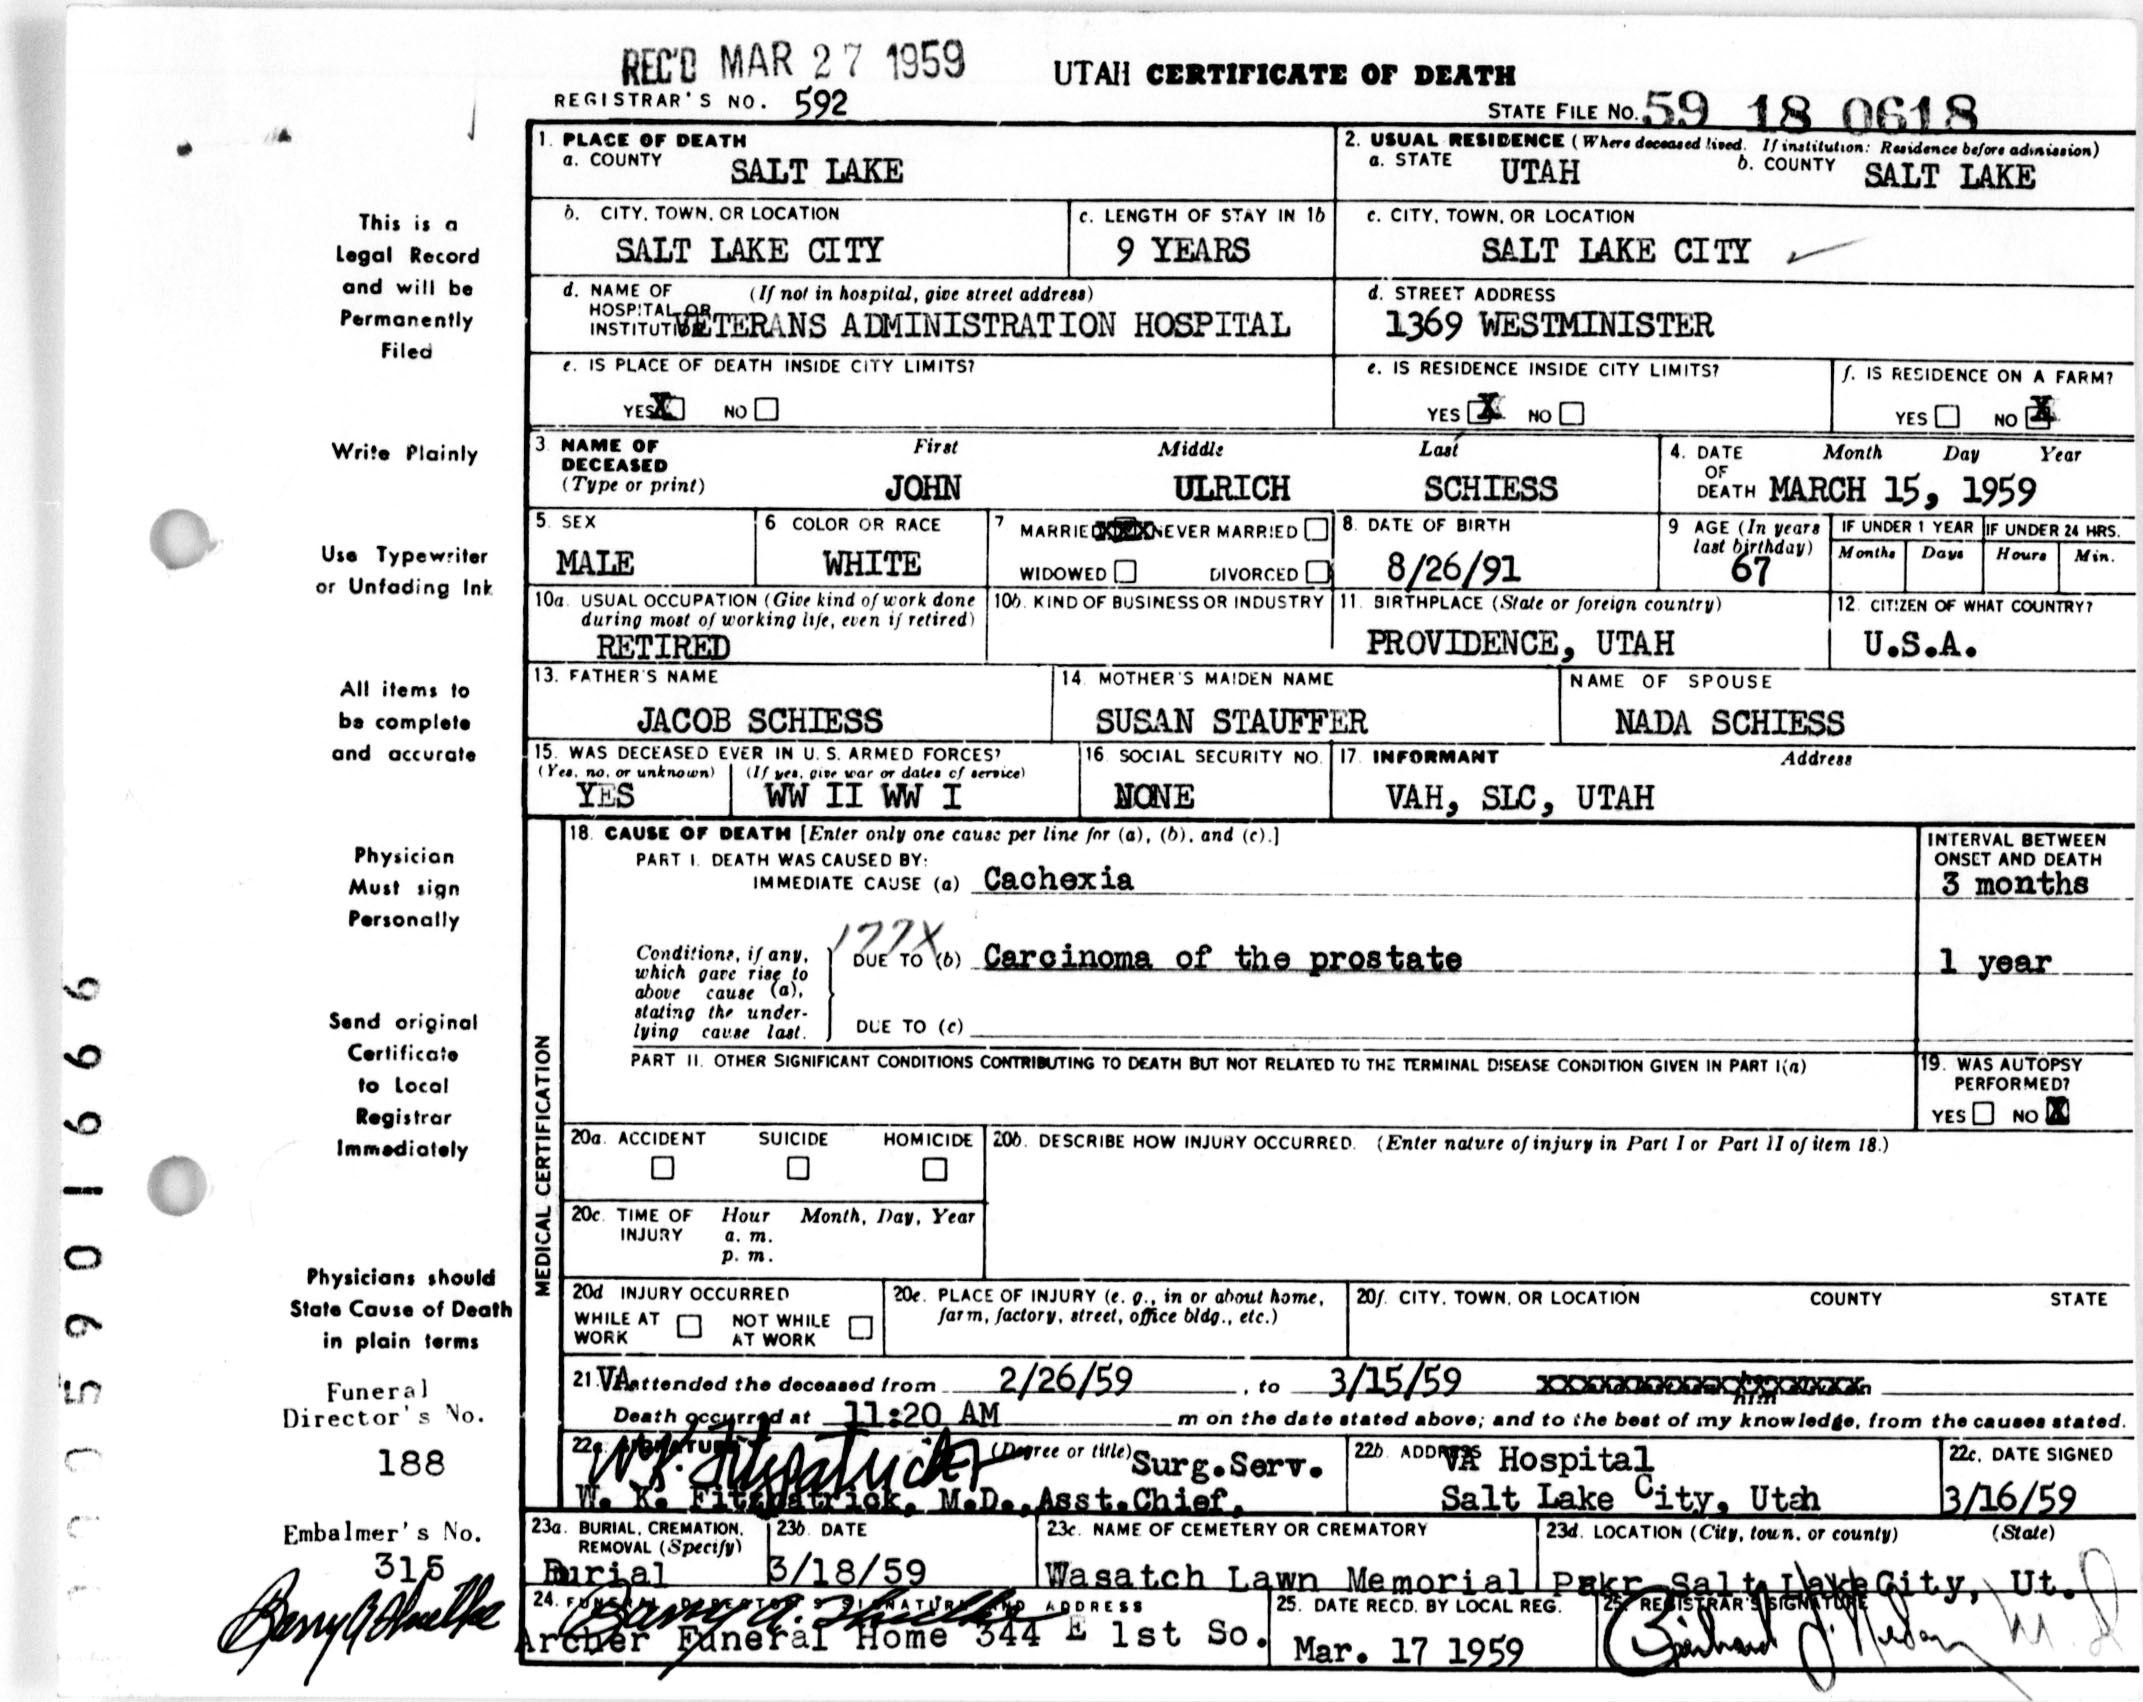 REC'D MAR 27 1959
UTAH CERTIFICATE OF DEATH
REGISTRAR'S NO. 592
STATE FILE NO. 59 18 0618
This is a
Legal Record
and will be
Permanently
Filed
Write Plainly
Use Typewriter
or Unfading Ink
All items to
be complete
and accurate
Physician
Must sign
Personally
Send original
Certificate
to Local
Registrar
Immediately
Physicians should
State Cause of Death
in plain terms
Funeral
Director's No.
188
Embalmer's No.
315
1. PLACE OF DEATH
a. COUNTY
SALT LAKE
2. USUAL RESIDENCE (Where deceased lived. If institution: Residence before admission)
a. STATE UTAH b. COUNTY SALT LAKE
b. CITY, TOWN, OR LOCATION
SALT LAKE CITY
c. LENGTH OF STAY IN 1b
9 YEARS
c. CITY, TOWN, OR LOCATION
SALT LAKE CITY
d. NAME OF (If not in hospital, give street address)
HOSPITAL OR
INSTITUTION VETERANS ADMINISTRATION HOSPITAL
d. STREET ADDRESS
1369 WESTMINISTER
e. IS PLACE OF DEATH INSIDE CITY LIMITS?
YES X NO
e. IS RESIDENCE INSIDE CITY LIMITS?
YES X NO
f. IS RESIDENCE ON A FARM?
YES NO X
3. NAME OF DECEASED (Type or print)
First Middle Last
JOHN ULRICH SCHIESS
4. DATE OF DEATH Month Day Year
MARCH 15, 1959
5. SEX
MALE
6 COLOR OR RACE
WHITE
7 MARRIED XXX NEVER MARRIED
WIDOWED DIVORCED
8. DATE OF BIRTH
8/26/91
9 AGE (In years last birthday)
67
IF UNDER 1 YEAR IF UNDER 24 HRS.
Months Days Hours Min.
10a. USUAL OCCUPATION (Give kind of work done
during most of working life, even if retired)
RETIRED
10b. KIND OF BUSINESS OR INDUSTRY
11. BIRTHPLACE (State or foreign country)
PROVIDENCE, UTAH
12. CITIZEN OF WHAT COUNTRY?
U.S.A.
13. FATHER'S NAME
JACOB SCHIESS
14. MOTHER'S MAIDEN NAME
SUSAN STAUFFER
NAME OF SPOUSE
NADA SCHIESS
15. WAS DECEASED EVER IN U. S. ARMED FORCES?
(Yes, no, or unknown) (If yes, give war or dates of service)
YES WW II WW I
16. SOCIAL SECURITY NO.
NONE
17. INFORMANT Address
VAH, SLC, UTAH
MEDICAL CERTIFICATION
18. CAUSE OF DEATH [Enter only one cause per line for (a), (b), and (c).]
PART I. DEATH WAS CAUSED BY:
IMMEDIATE CAUSE (a) Cachexia
INTERVAL BETWEEN
ONSET AND DEATH
3 months
177X
Conditions, if any,
which gave rise to
above cause (a),
stating the under-
lying cause last.
DUE TO (b) Carcinoma of the prostate
1 year
DUE TO (c)
PART II. OTHER SIGNIFICANT CONDITIONS CONTRIBUTING TO DEATH BUT NOT RELATED TO THE TERMINAL DISEASE CONDITION GIVEN IN PART I(a)
19. WAS AUTOPSY
PERFORMED?
YES NO X
20a. ACCIDENT SUICIDE HOMICIDE
20b. DESCRIBE HOW INJURY OCCURRED. (Enter nature of injury in Part I or Part II of item 18.)
20c. TIME OF INJURY Hour Month, Day, Year
a. m.
p. m.
20d INJURY OCCURRED
WHILE AT WORK NOT WHILE AT WORK
20e. PLACE OF INJURY (e. g., in or about home,
farm, factory, street, office bldg., etc.)
20f. CITY, TOWN, OR LOCATION COUNTY STATE
21. VA attended the deceased from 2/26/59, to 3/15/59
him
Death occurred at 11:20 AM m on the date stated above; and to the best of my knowledge, from the causes stated.
22a. SIGNATURE (Degree or title) Surg.Serv.
W. K. Fitzpatrick
W. K. Fitzpatrick, M.D., Asst.Chief,
22b. ADDRESS VA Hospital
Salt Lake City, Utah
22c. DATE SIGNED
3/16/59
23a. BURIAL, CREMATION,
REMOVAL (Specify)
Burial
23b. DATE
3/18/59
23c. NAME OF CEMETERY OR CREMATORY
Wasatch Lawn Memorial
23d. LOCATION (City, town, or county) (State)
Pakr Salt Lake City, Ut.
24. FUNERAL DIRECTOR'S SIGNATURE AND ADDRESS
Archer Funeral Home 344 E 1st So.
25. DATE RECD. BY LOCAL REG.
Mar. 17 1959
25. REGISTRAR'S SIGNATURE